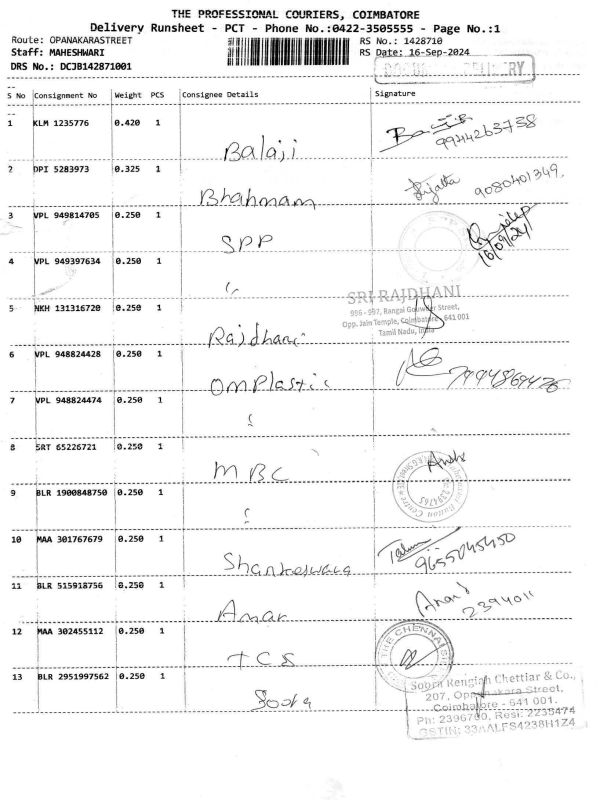 THE PROFESSIONAL COURIERS, COIMBATORE
Delivery Runsheet - PCT - Phone No.:0422-3505555 - Page No.:1
Route: OPANAKARASTREET
RS No.: 1428710
Staff: MAHESHWARI
RS Date: 16-Sep-2024
DRS No.: DCJB142871001
DELIVERY
S No Consignment No Weight PCS Consignee Details Signature
1 KLM 1235776 0.420 1
Balaji 9944263738
2 DPI 5283973 0.325 1
Bhahmam 9080401349.
3 VPL 949814705 0.250 1
SPP 16/09/24
4 VPL 949397634 0.250 1
"
SRI RAJDHANI
996 - 997, Rangai Gowder Street,
Opp. Jain Temple, Coimbatore - 641 001
Tamil Nadu, India
5 NKH 131316720 0.250 1
Rajdhani
6 VPL 948824428 0.250 1
OmPlastic
7 VPL 948824474 0.250 1
8 SRT 65226721 0.250 1
MBC
9 BLR 1900848750 0.250 1
10 MAA 301767679 0.250 1
Shankeswara 9655045450
11 BLR 515918756 0.250 1
Amar Anand
2394011
12 MAA 302455112 0.250 1
TCS THE CHENNAI
13 BLR 2951997562 0.250 1
Soora
Soora Rengiah Chettiar & Co.,
207, Oppanakara Street,
Coimbatore - 641 001.
Ph: 2396700, Resi: 2235474
GSTIN: 33AALFS4238H1Z4